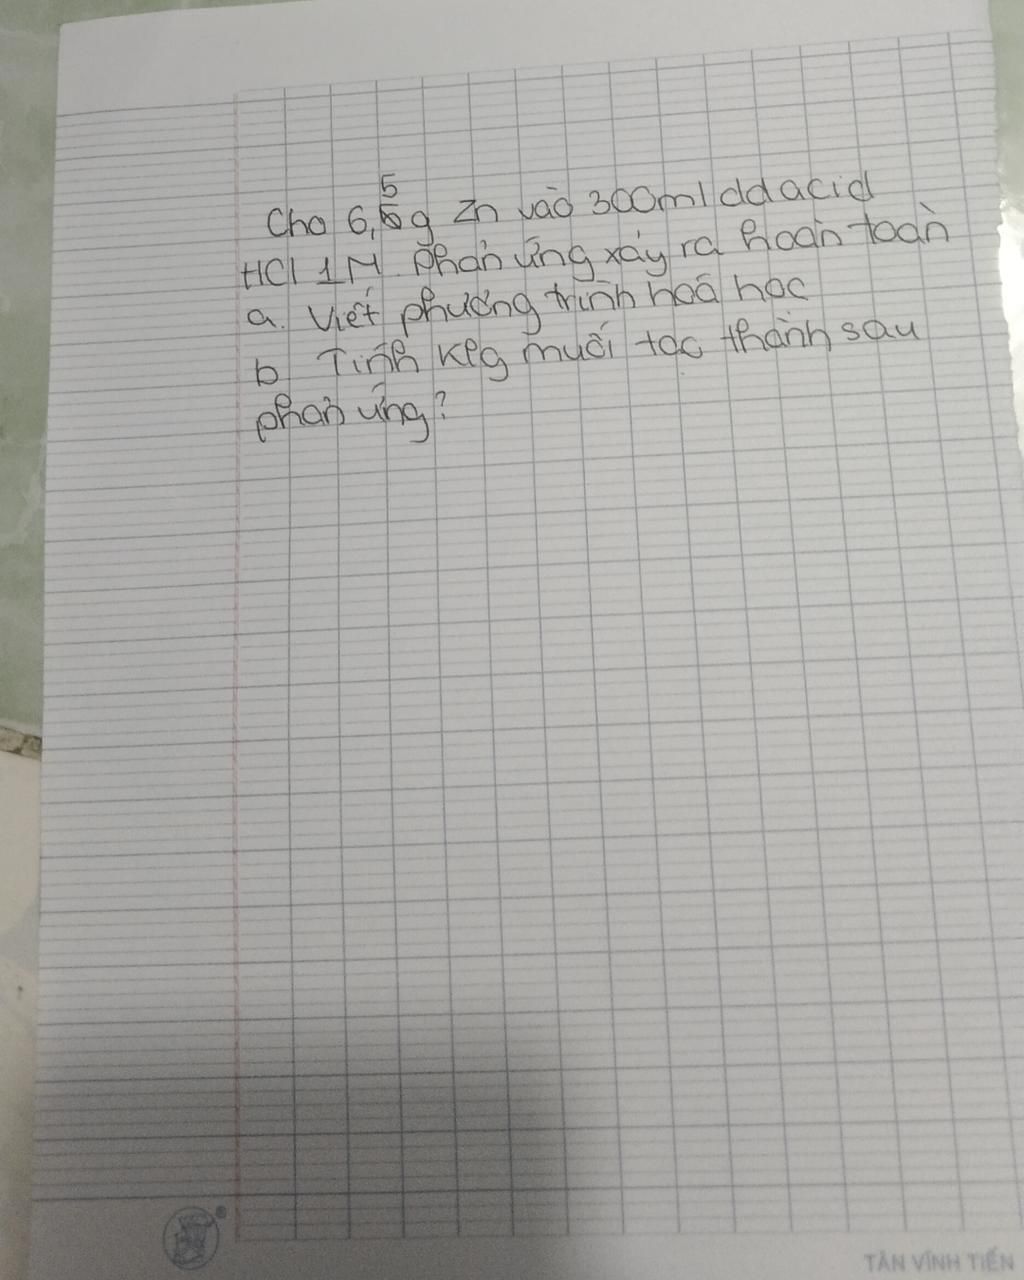 5
Cho 6,6g Zn vào 300ml dd acid
HCl 1M. Phản ứng xảy ra hoàn toàn
a. Viết phương trình hoá học
b Tính klg muối tạc thành sau
phản ứng?
TÂN VĨNH TIẾN